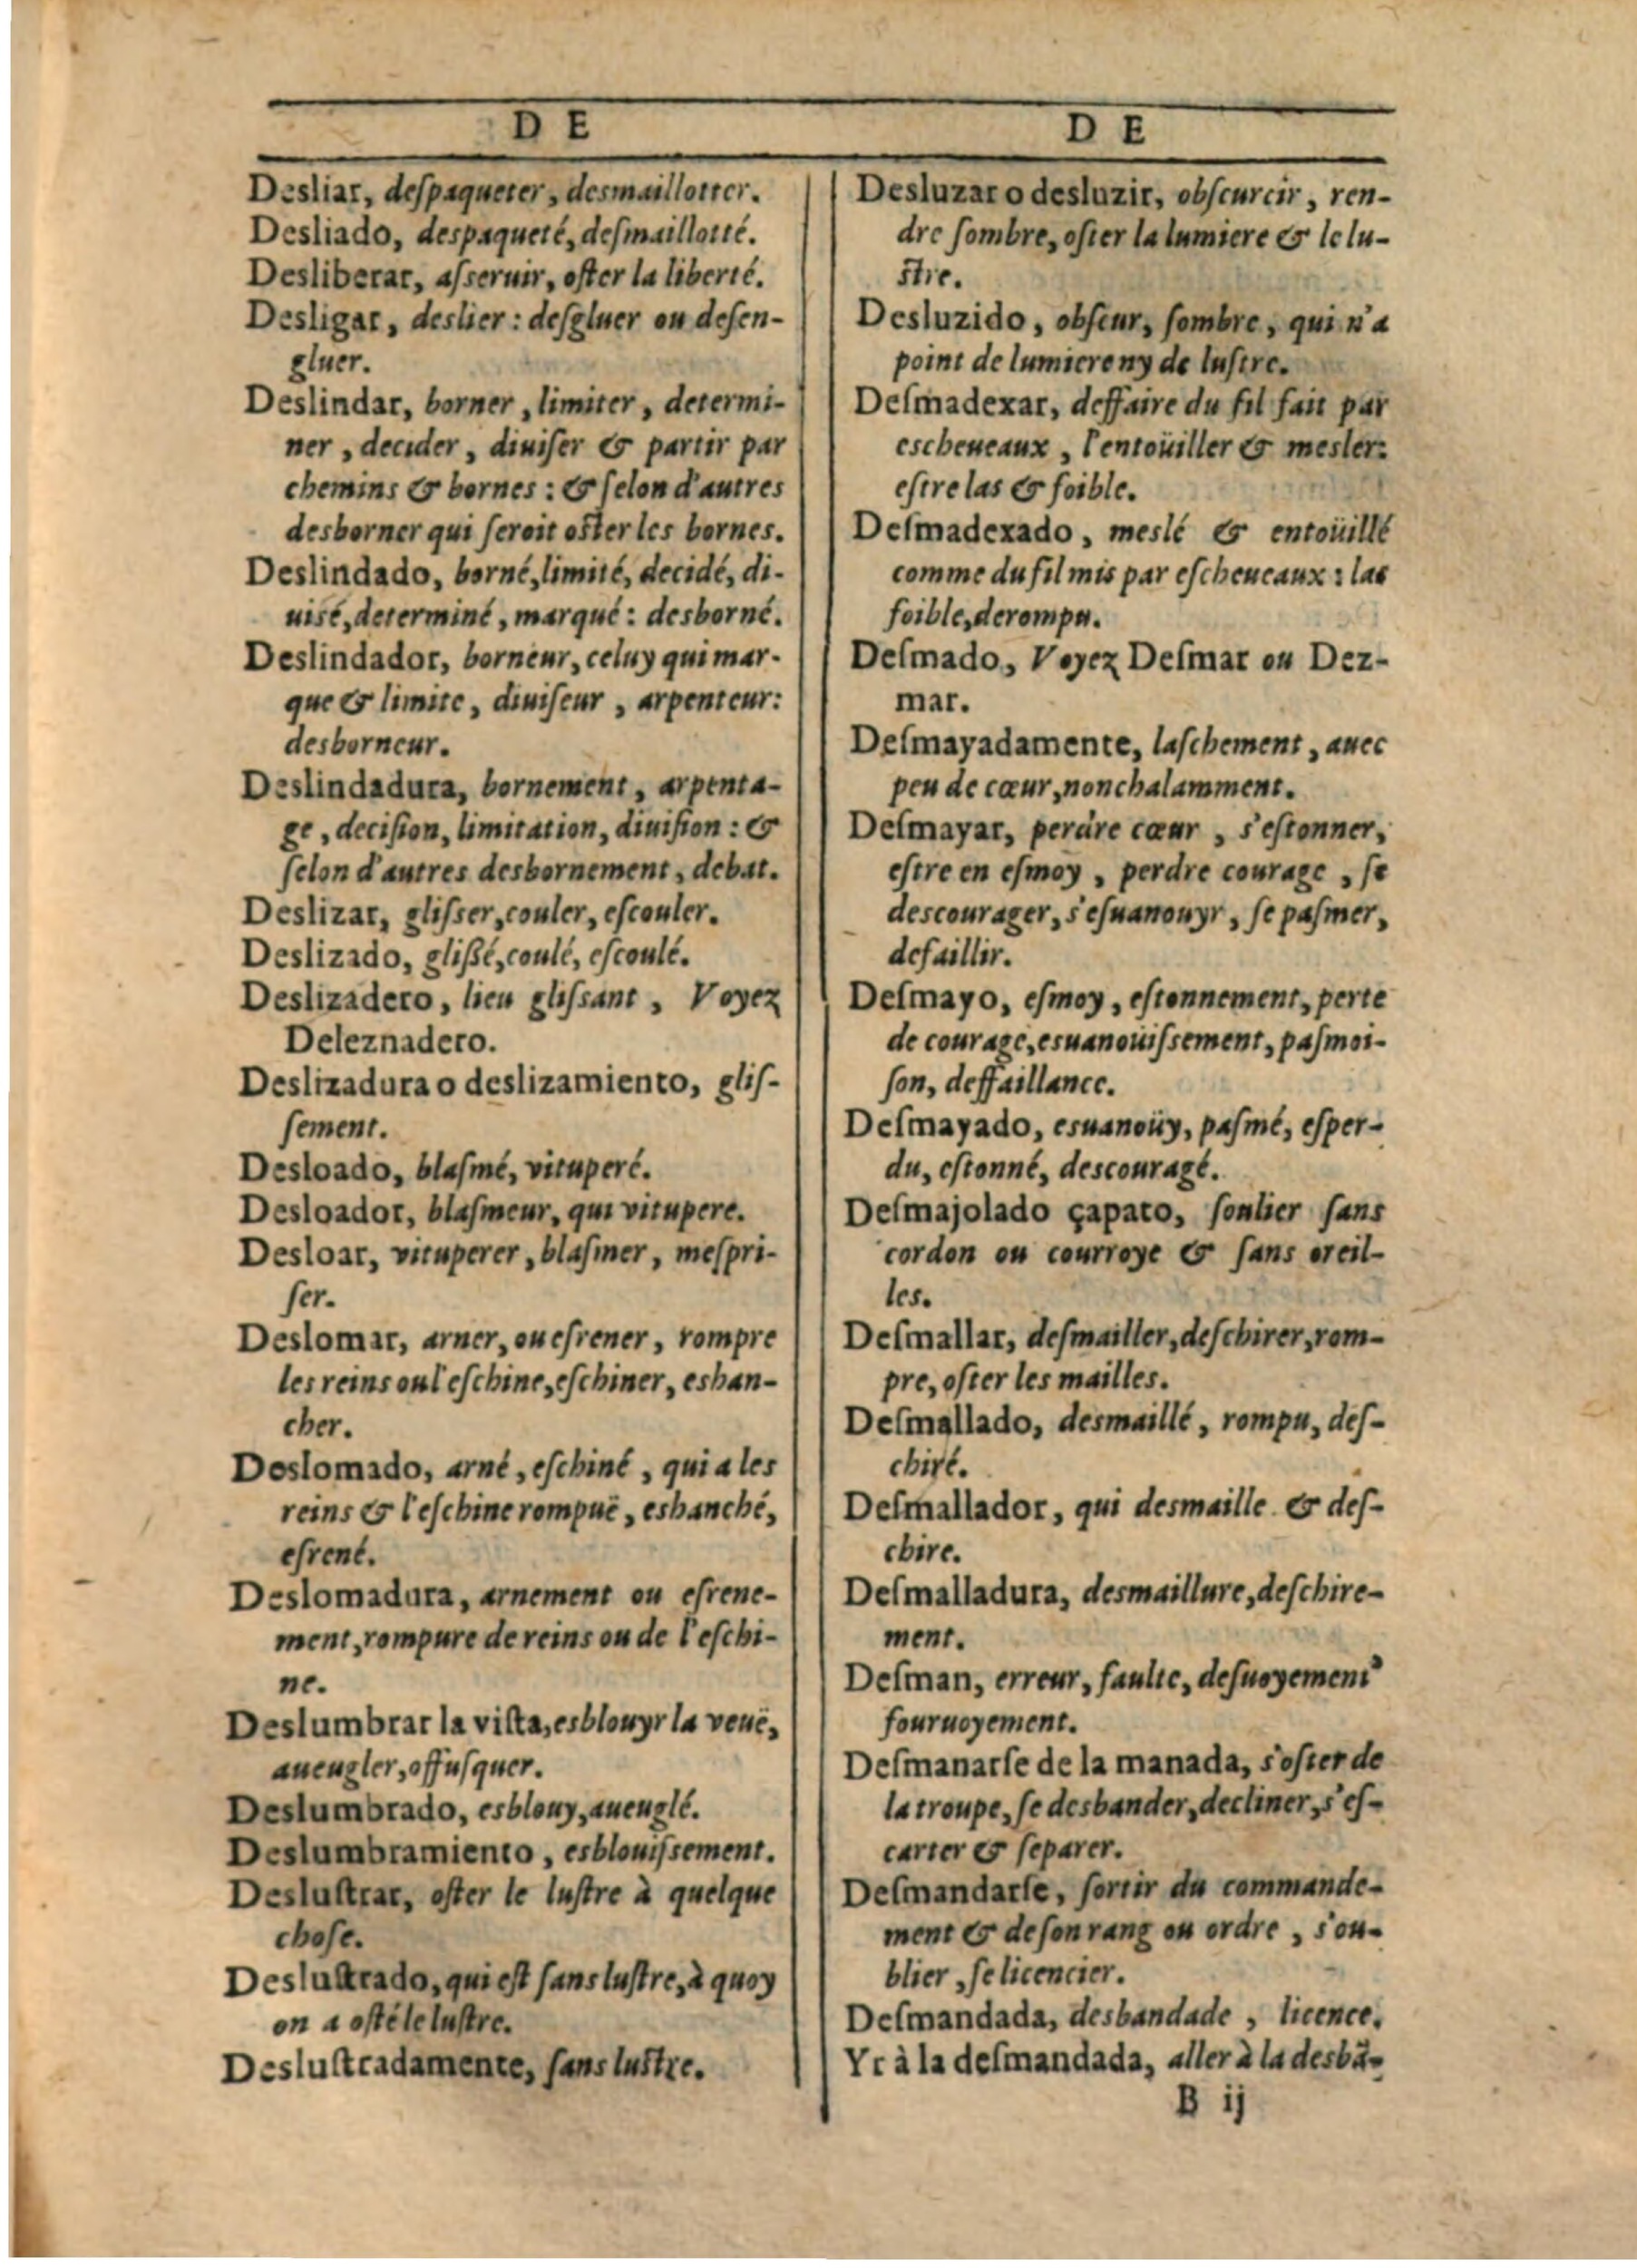 D E
Desliar, deſpaqueter, desmaillotter.
Desliado, despaqueté, deſmaillotté.
Desliberar, aſseruir, oſter la liberté.
Desligar, deslier : deſgluer ou deſen-
gluer.
Deslindar, borner, limiter, determi-
ner, decider, diuiſer & partir par
chemins & bornes : & ſelon d'autres
desborner qui ſeroit oſter les bornes.
Deslindado, borné, limité, decidé, di-
uisé, determiné, marqué : desborné.
Deslindador, borneur, celuy qui mar-
que & limite, diuiſeur, arpenteur:
desborneur.
Deslindadura, bornement, arpenta-
ge, deciſion, limitation, diuiſion : &
ſelon d'autres desbornement, debat.
Deslizar, gliſser, couler, eſcouler.
Deslizado, glißé, coulé, eſcoulé.
Deslizadero, lieu gliſsant, Voyez
Deleznadero.
Deslizadura o deslizamiento, gliſ-
ſement.
Desloado, blaſmé, vituperé.
Desloador, blaſmeur, qui vitupere.
Desloar, vituperer, blaſmer, meſpri-
ſer.
Deslomar, arner, ou eſrener, rompre
les reins ou l'eſchine, eſchiner, eshan-
cher.
Doslomado, arné, eſchiné, qui a les
reins & l'eſchine rompuë, eshanché,
eſrené.
Deslomadura, arnement ou eſrene-
ment, rompure de reins ou de l'eſchi-
ne.
Deslumbrar la viſta, esblouyr la veuë,
aueugler, offuſquer.
Deslumbrado, esblouy, aueuglé.
Deslumbramiento, esblouiſsement.
Desluſtrar, oſter le luſtre à quelque
choſe.
Desluſtrado, qui eſt ſans luſtre, à quoy
on a oſté le luſtre.
Desluſtradamente, ſans luſtre.
D E
Desluzar o desluzir, obſcurcir, ren-
dre ſombre, oſter la lumiere & le lu-
ſtre.
Desluzido, obſcur, ſombre, qui n'a
point de lumiere ny de luſtre.
Deſmadexar, deffaire du fil fait par
escheueaux, l'entoüiller & mesler:
eſtre las & foible.
Deſmadexado, meslé & entoüillé
comme du fil mis par eſcheueaux : las
foible, derompu.
Deſmado, Voyez Deſmar ou Dez-
mar.
Deſmayadamente, laſchement, auec
peu de cœur, nonchalamment.
Deſmayar, perdre cœur, s'eſtonner,
eſtre en eſmoy, perdre courage, ſe
descourager, s'eſuanouyr, ſe paſmer,
defaillir.
Deſmayo, eſmoy, eſtonnement, perte
de courage, esuanoüiſsement, paſmoi-
ſon, deffaillance.
Deſmayado, esuanoüy, paſmé, eſper-
du, eſtonné, descouragé.
Deſmajolado çapato, ſoulier ſans
cordon ou courroye & ſans oreil-
les.
Deſmallar, deſmailler, deſchirer, rom-
pre, oſter les mailles.
Deſmallado, desmaillé, rompu, deſ-
chiré.
Deſmallador, qui desmaille & deſ-
chire.
Deſmalladura, desmaillure, deſchire-
ment.
Deſman, erreur, faulte, deſuoyement
fouruoyement.
Deſmanarſe de la manada, s'oſter de
la troupe, ſe desbander, decliner, s'eſ-
carter & ſeparer.
Deſmandarſe, ſortir du commande-
ment & de ſon rang ou ordre, s'ou-
blier, ſe licencier.
Deſmandada, desbandade, licence.
Yr à la deſmandada, aller à la desbã-
B ij